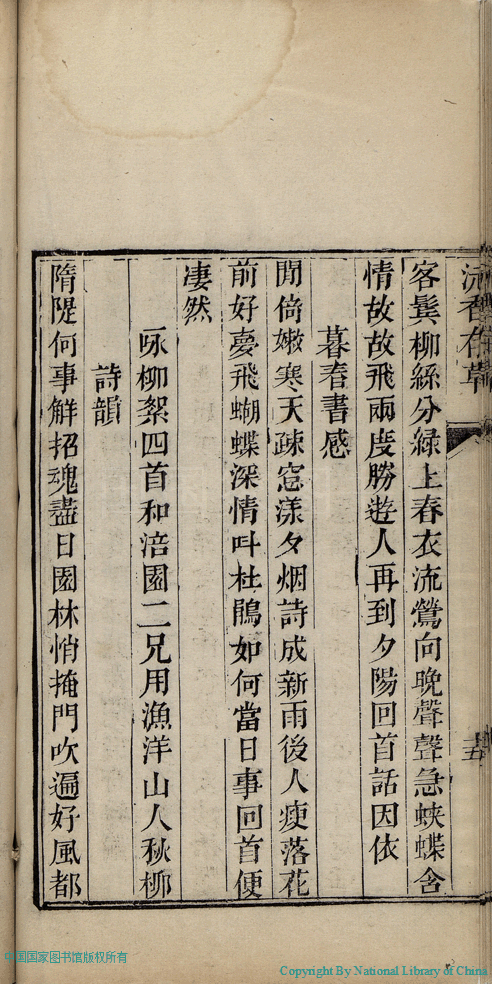 沅香存草
十五
客鬂柳絲分綠上春衣流鶯向晚聲聲急蛺蝶含
情故故飛兩度勝遊人再到夕陽回首話因依
暮春書感
閒倚嫩寒天疎窓漾夕烟詩成新雨後人瘦落花
前好憂飛蝴蝶深情呌杜鵑如何當日事回首便
凄然
咏柳絮四首和涪園二兄用漁洋山人秋柳
詩韻
隋隄何事觧招魂盡日園林悄掩門吹遍好風都
中国国家图书馆版权所有
Copyright By National Library of China